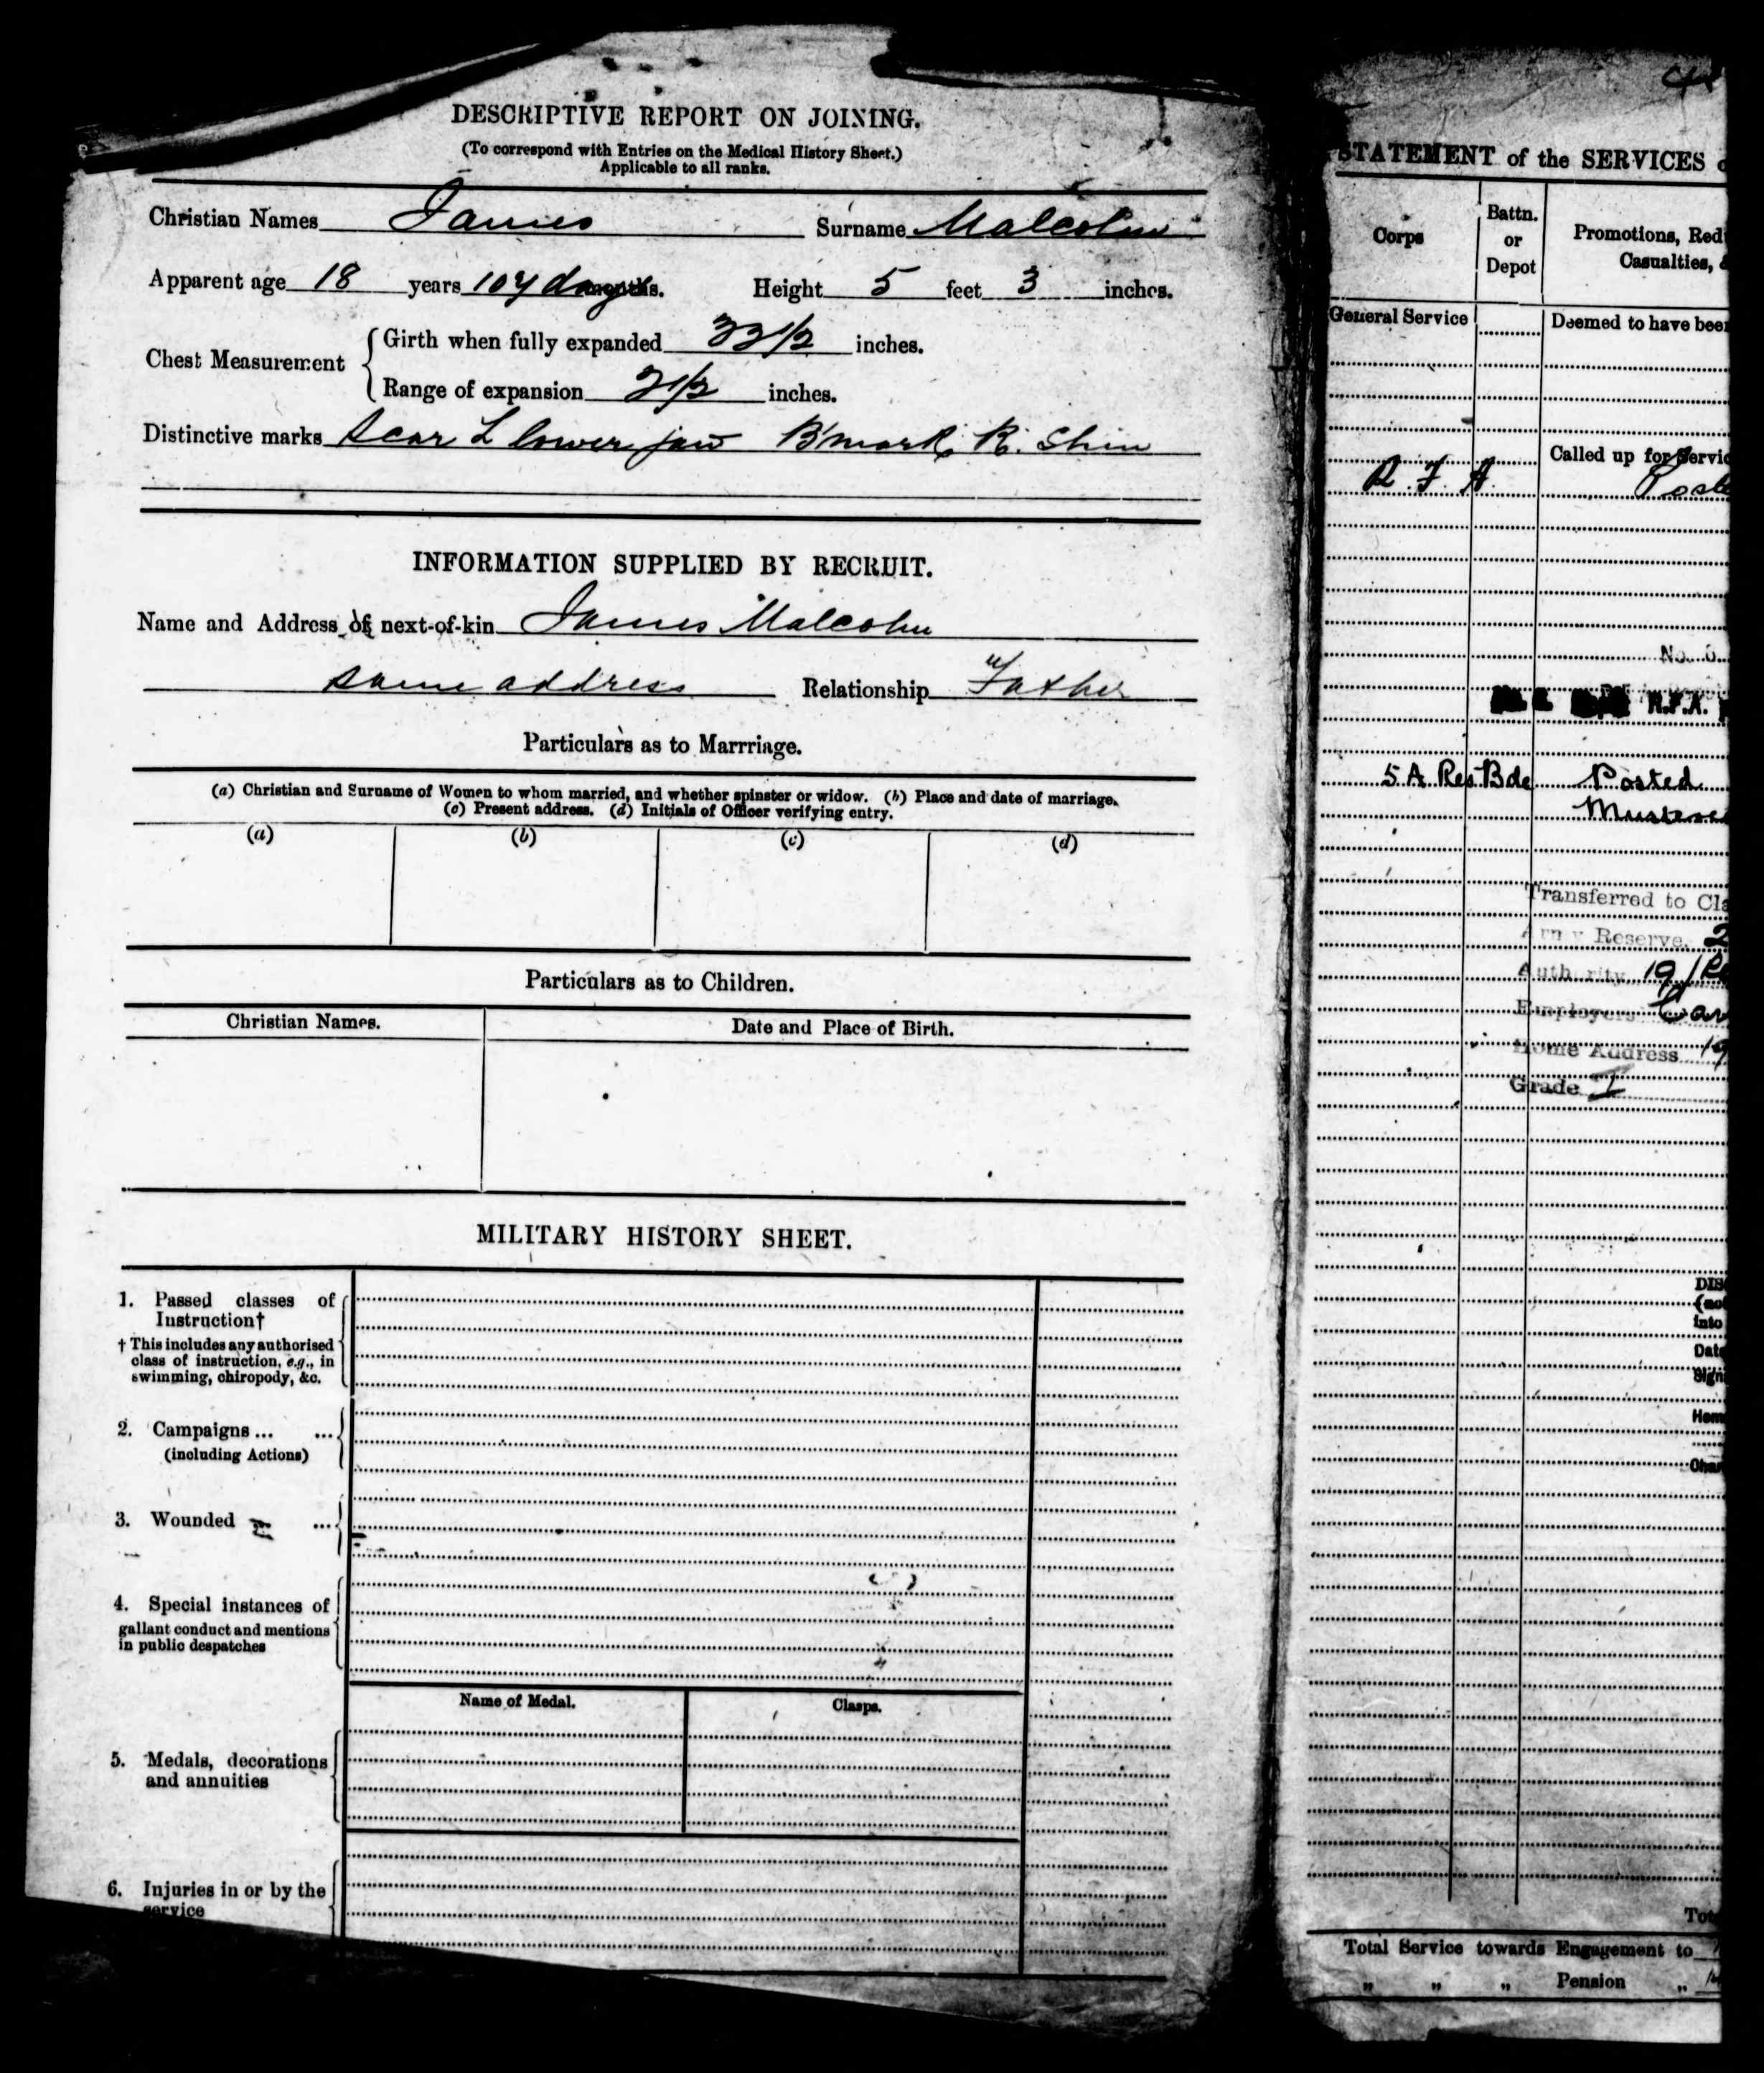 DESCRIPTIVE REPORT ON JOINING.
(To correspond with Entries on the Medical History Sheet.)
Applicable to all ranks.
Christian Names James Surname Malcolm
Apparent age 18 years 104 days months. Height 5 feet 3 inches.
Chest Measurement
Girth when fully expanded 33 1/2 inches.
Range of expansion 2 1/2 inches.
Distinctive marks Scar L lower jaw B'mark R. Shin
INFORMATION SUPPLIED BY RECRUIT.
Name and Address of next-of-kin James Malcolm
same address Relationship Father
Particulars as to Marrriage.
(a) Christian and Surname of Women to whom married, and whether spinster or widow. (b) Place and date of marriage.
(c) Present address. (d) Initials of Officer verifying entry.
(a) (b) (c) (d)
Particulars as to Children.
Christian Names. Date and Place of Birth.
MILITARY HISTORY SHEET.
1. Passed classes of
Instruction†
† This includes any authorised
class of instruction, e.g., in
swimming, chiropody, &c.
2. Campaigns ... ...
(including Actions)
3. Wounded ...
4. Special instances of
gallant conduct and mentions
in public despatches
Name of Medal. Clasps.
5. Medals, decorations
and annuities
6. Injuries in or by the
service
STATEMENT of the SERVICES
Corps
Battn.
or
Depot
Promotions, Red
Casualties,
General Service Deemed to have bee
Called up for Servic
R. F. A. Poste
No. 6
R.F.A.
5 A Res Bde Posted
Mustere
Transferred to Cla
Army Reserve. 2
Authority 19/
Employers Car
Home Address 19
Grade I
DIS
(no
into
Date
Sign
Hom
Char
Tot
Total Service towards Engagement to
" " " Pension "